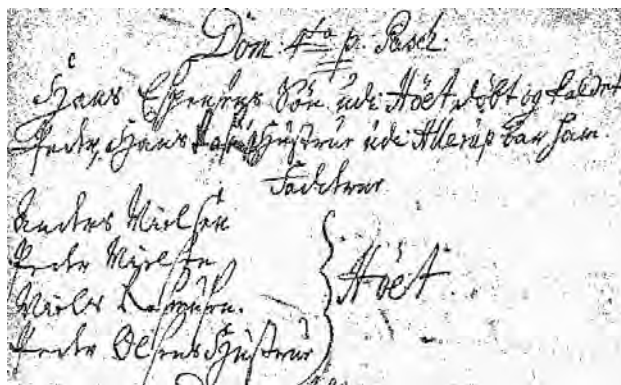 Dom. 4ta p. Pasch.
Hans Espensens Sön udi Höet döbt og kaldet
Peder, Hans Hüstrue udi Allerup bar ham.
Fadderne
Anders Nielsen
Peder Nielsen
Niels Rasmusen.
Peder Olsens Hüstrue
Höet.